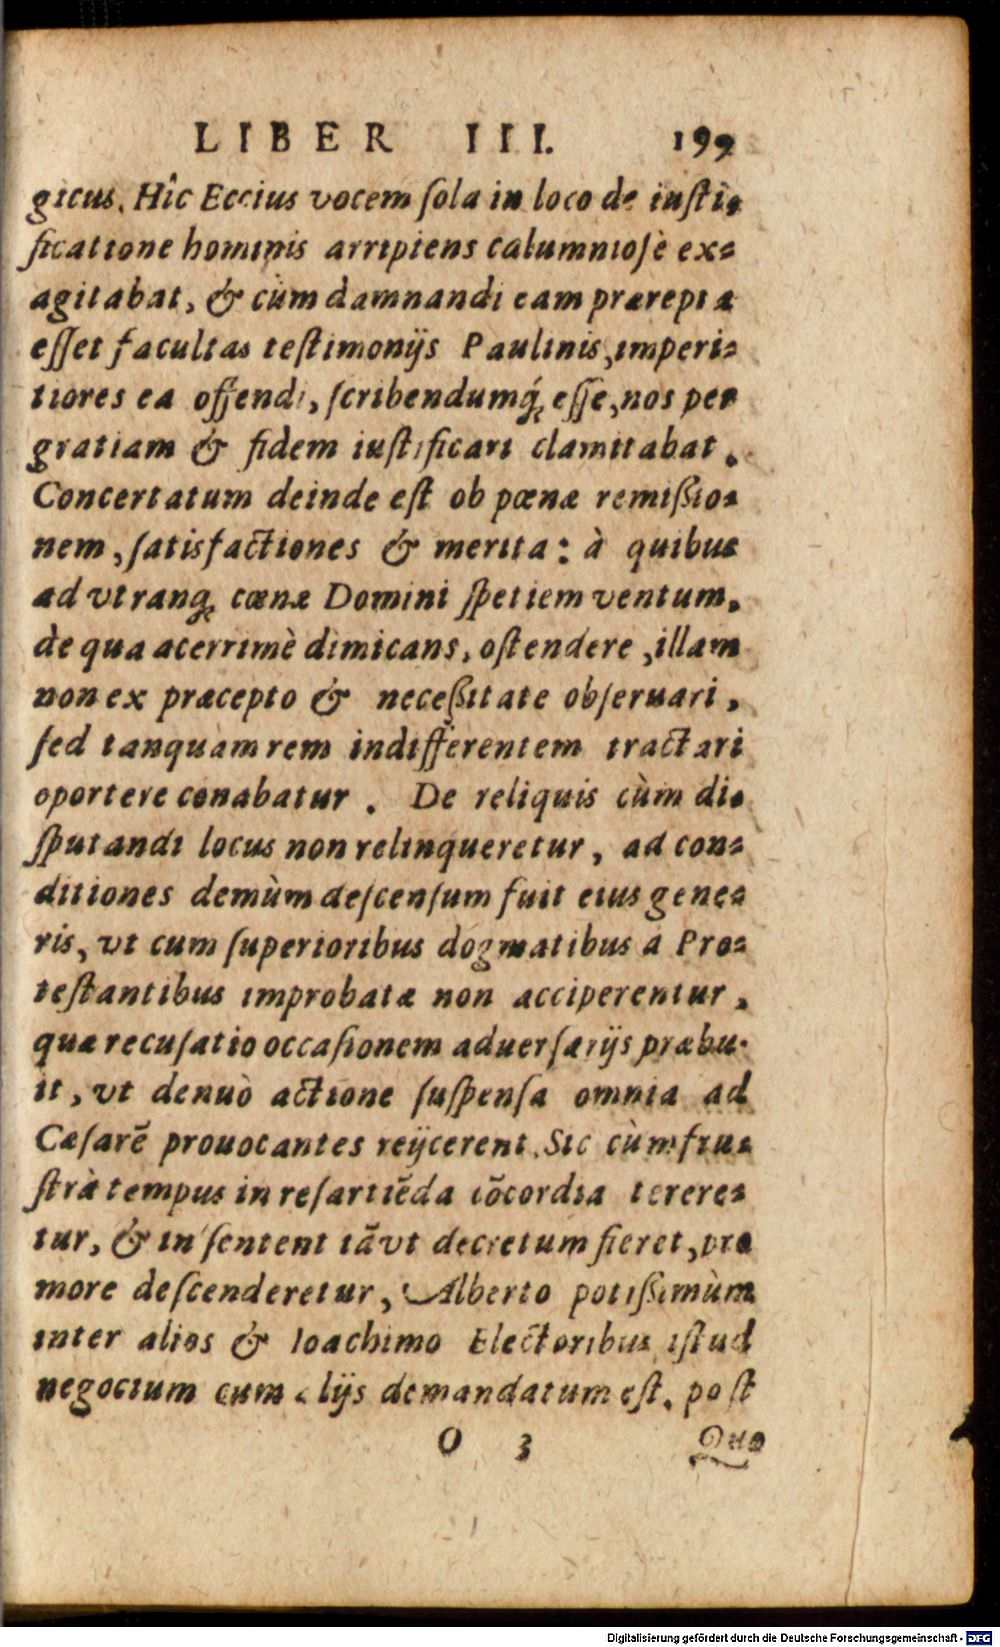 LIBER III. 199
gicus. Hîc Eccius vocem ſola in loco de iuſti-
ficatione hominis arripiens calumnioſè ex-
agitabat, & cùm damnandi eam prærepta
eſſet facultas teſtimonijs Paulinis, imperi-
tiores ea offendi, ſcribendumq́; eſſe, nos per
gratiam & fidem iuſtificari clamitabat.
Concertatum deinde eſt ob pœnæ remiſſio-
nem, ſatisfactiones & merita: à quibus
ad vtranq; cœnæ Domini ſpetiem ventum,
de qua acerrimè dimicans, oſtendere, illam
non ex præcepto & neceſſitate obſeruari,
ſed tanquam rem indifferentem tractari
oportere conabatur. De reliquis cùm di-
ſputandi locus non relinqueretur, ad con-
ditiones demùm deſcenſum fuit eius gene-
ris, vt cum ſuperioribus dogmatibus à Pro-
teſtantibus improbatæ non acciperentur,
quæ recuſatio occaſionem aduerſarijs præbu-
it, vt denuò actione ſuſpenſa omnia ad
Cæſarē prouocantes reijcerent. Sic cùm fru-
ſtrà tempus in reſartiēda cōcordia terere-
tur, & in ſententiā vt decretum fieret, pro
more deſcenderetur, Alberto potiſſimùm
inter alios & Ioachimo Electoribus iſtud
negocium cum alijs demandatum eſt. poſt
O 3 Quo
Digitalisierung gefördert durch die Deutsche Forschungsgemeinschaft - DFG